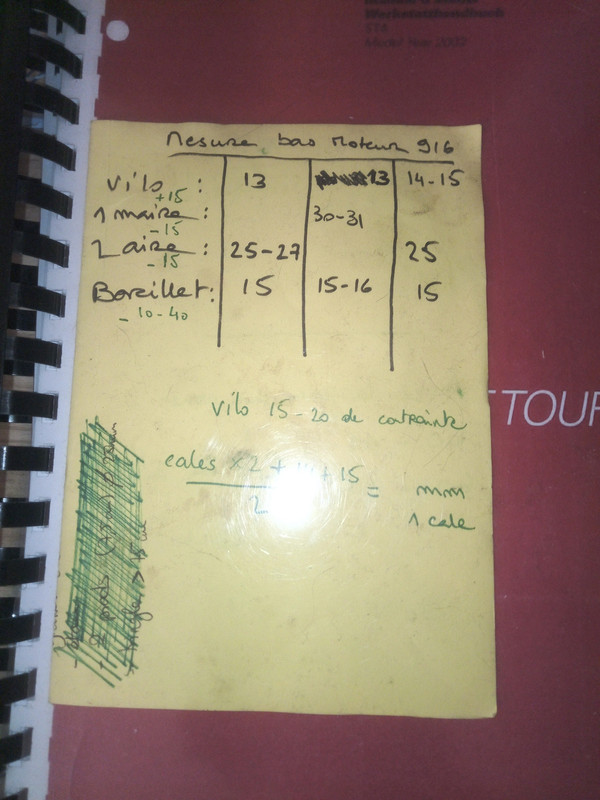 Werkstatthandbuch
ST4
Model Year 2002
Mesure bas moteur 916
Vilo : 13 13 14-15
+15
1 maire : 30-31
-15
2 aire : 25-27 25
-15
Barillet : 15 15-16 15
- 10-40
Vilo 15-20 de contrainte
cales x2 + + 15
2
= mm
1 cale
TOUR